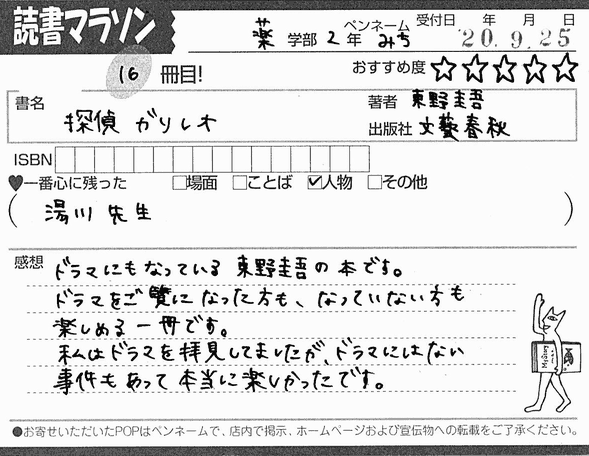 読書マラソン
薬 学部 2 年 ペンネーム みち 受付日 年 月 日 '20.9.25
16 冊目! おすすめ度 ☆☆☆☆☆
書名 探偵ガリレオ 著者 東野圭吾
出版社 文藝春秋
ISBN
♥一番心に残った □場面 □ことば ☑人物 □その他
( 湯川先生 )
感想 ドラマにもなっている東野圭吾の本です。
ドラマをご覧になった方も、なっていない方も
楽しめる一冊です。
私はドラマを拝見してましたが、ドラマにはない
事件もあって本当に楽しかったです。
●お寄せいただいたPOPはペンネームで、店内で掲示、ホームページおよび宣伝物への転載をご了承ください。